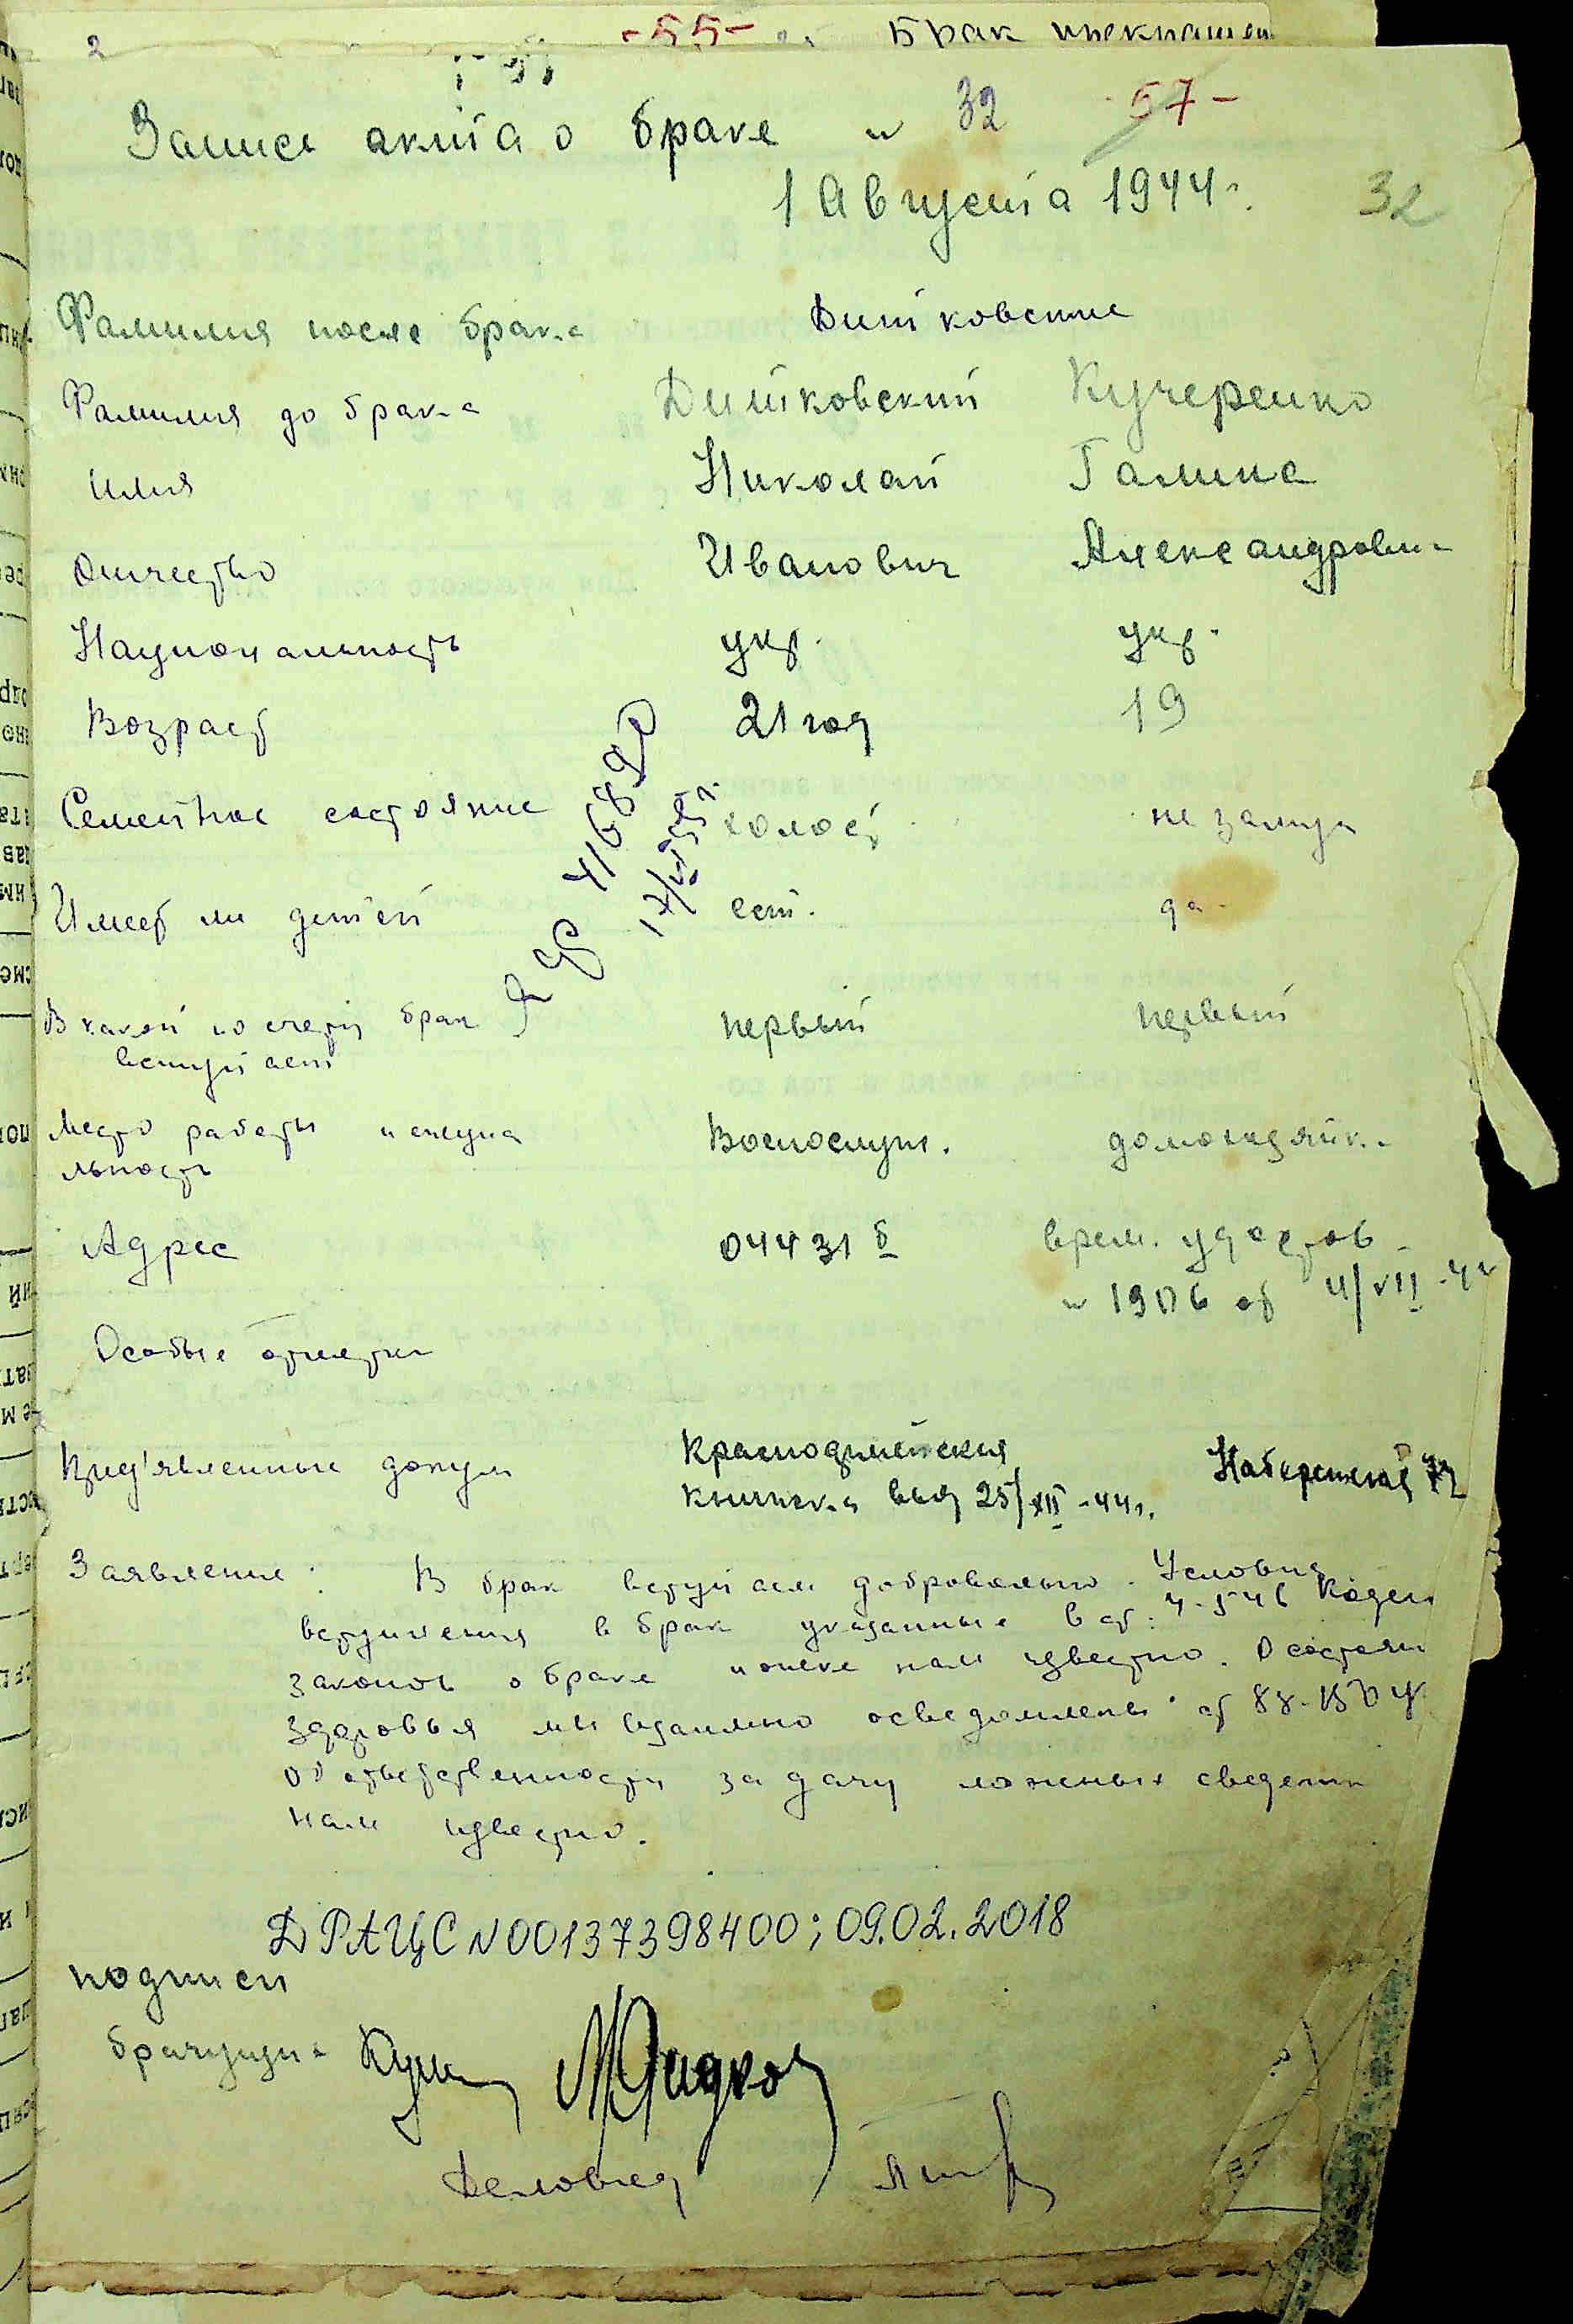 -55- Брак
2
Запись акта о браке № 32 57-
1 Августа 1944 г. 32
Фамилия после брака Дитковские
Фамилия до брака Дитковский Кучеренко
Имя Николай Галина
Отчество Иванович Александровн
Национальность укр. укр.
Возраст 21 год 19
Семейное состояние холост не замуж
Имеет ли детей ест. да
В какой по счету брак первый первый
вступает
Место работы и специа Воєнослуж. домохозяйк.
льность
Адрес 04431 б врем. удостов
№ 1906 от 4/VII-44
Особые отметки
Пред'явленные докум Красноармейская Набережная 72
книжка выд 25/XII-44г.
Заявление: В брак вступаем добровольно. Условия
вступления в брак указанные в ст: 4-5 и 6 Кодек
законов о браке и опеке нам известно. О состоян
здоровья мы взаимно осведомлены ст 88-
Об ответственности за дачу ложных сведени
нам известно.
ДРАЦС N00137398400; 09.02.2018
подписи
брачущихся
Деловод